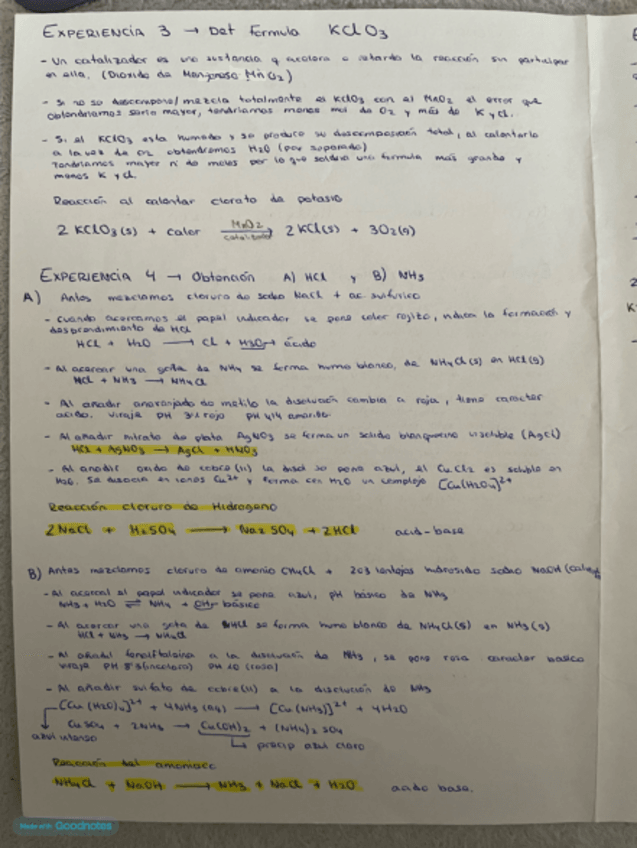 EXPERIENCIA 3 → Det formula KClO3
- Un catalizador es una sustancia q acelera o retarda la reacción sin participar
en ella. (Dioxido de Manganeso MnO2)
- Si no se descompone/mezcla totalmente el KClO3 con el MnO2 el error que
obtendriamos seria mayor, tendriamos menos mol de O2 y más de K y Cl.
- Si el KClO3 esta humedo y se produce su descomposición total, al calentarlo
a la vez de O2 obtendremos H2O (por separado)
Tendriamos mayor nº de moles por lo que saldria una formula más grande y
menos K y Cl.
Reacción al calentar clorato de potasio
2 KClO3(s) + calor MnO2 catalizador → 2 KCl(s) + 3O2(g)
EXPERIENCIA 4 → Obtención A) HCl y B) NH3
A) Antes mezclamos cloruro de sodio NaCl + ac. sulfurico
- Cuando acercamos el papel indicador se pone color rojizo, indica la formación y
desprendimiento de HCl
HCl + H2O → Cl + H3O → ácido
- Al acercar una gota de NH3 se forma humo blanco, de NH4Cl(s) en HCl(g)
HCl + NH3 → NH4Cl
- Al añadir anaranjado de metilo la disolución cambia a roja, tiene caracter
acido. Viraje PH 3'1 rojo PH 4'4 amarillo
- Al añadir nitrato de plata AgNO3 se forma un solido blanquecino insoluble (AgCl)
HCl + AgNO3 → AgCl + HNO3
- Al añadir oxido de cobre (II) la disol se pone azul, el CuCl2 es soluble en
H2O. Se disocia en iones Cu2+ y forma con H2O un complejo [Cu(H2O)4]2+
Reacción cloruro de Hidrogeno
2 NaCl + H2SO4 → Na2SO4 + 2HCl acid-base
B) Antes mezclamos cloruro de amonio + 2o3 lentejas hidroxido sodio NaOH
- Al acercar el papel indicador se pone azul, pH básico de NH3
NH3 + H2O ⇌ NH4 + OH- básico
- Al acercar una gota de HCl se forma humo blanco de NH4Cl(s) en NH3(g)
HCl + NH3 → NH4Cl
- Al añadir fenolftaleina a la disolución de NH3, se pone rosa caracter basico
viraje PH 8'3(incoloro) PH 10 (rosa)
- Al añadir sulfato de cobre(II) a la disolución de NH3
[Cu(H2O)4]2+ + 4NH3(aq) → [Cu(NH3)]2+ + 4H2O
CuSO4 + 2NH3 → Cu(OH)2 + (NH4)2SO4
azul intenso
↳ precip azul claro
Reacción del amoniaco
NH4Cl + NaOH → NH3 + NaCl + H2O acido base.
Made with Goodnotes